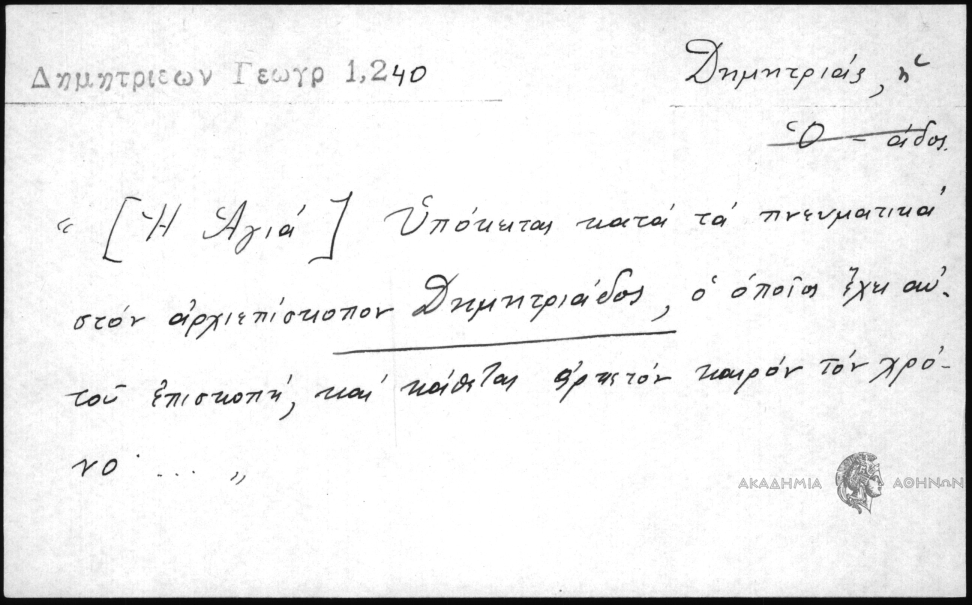 Δημητριεων Γεωγρ 1,240
Δημητριάς, ἡ
Ὁ - άδος.
" [Ἡ Ἁγιά] Ὑπόκειται κατά τά πνευματικά
στόν ἀρχιεπίσκοπον Δημητριάδος, ὁ ὁποῖος ἔχει αὐ-
τοῦ ἐπισκοπή, καί κάθεται ἀρκετόν καιρόν τόν χρό-
νο· ... "
ΑΚΑΔΗΜΙΑ ΑΘΗΝΩΝ